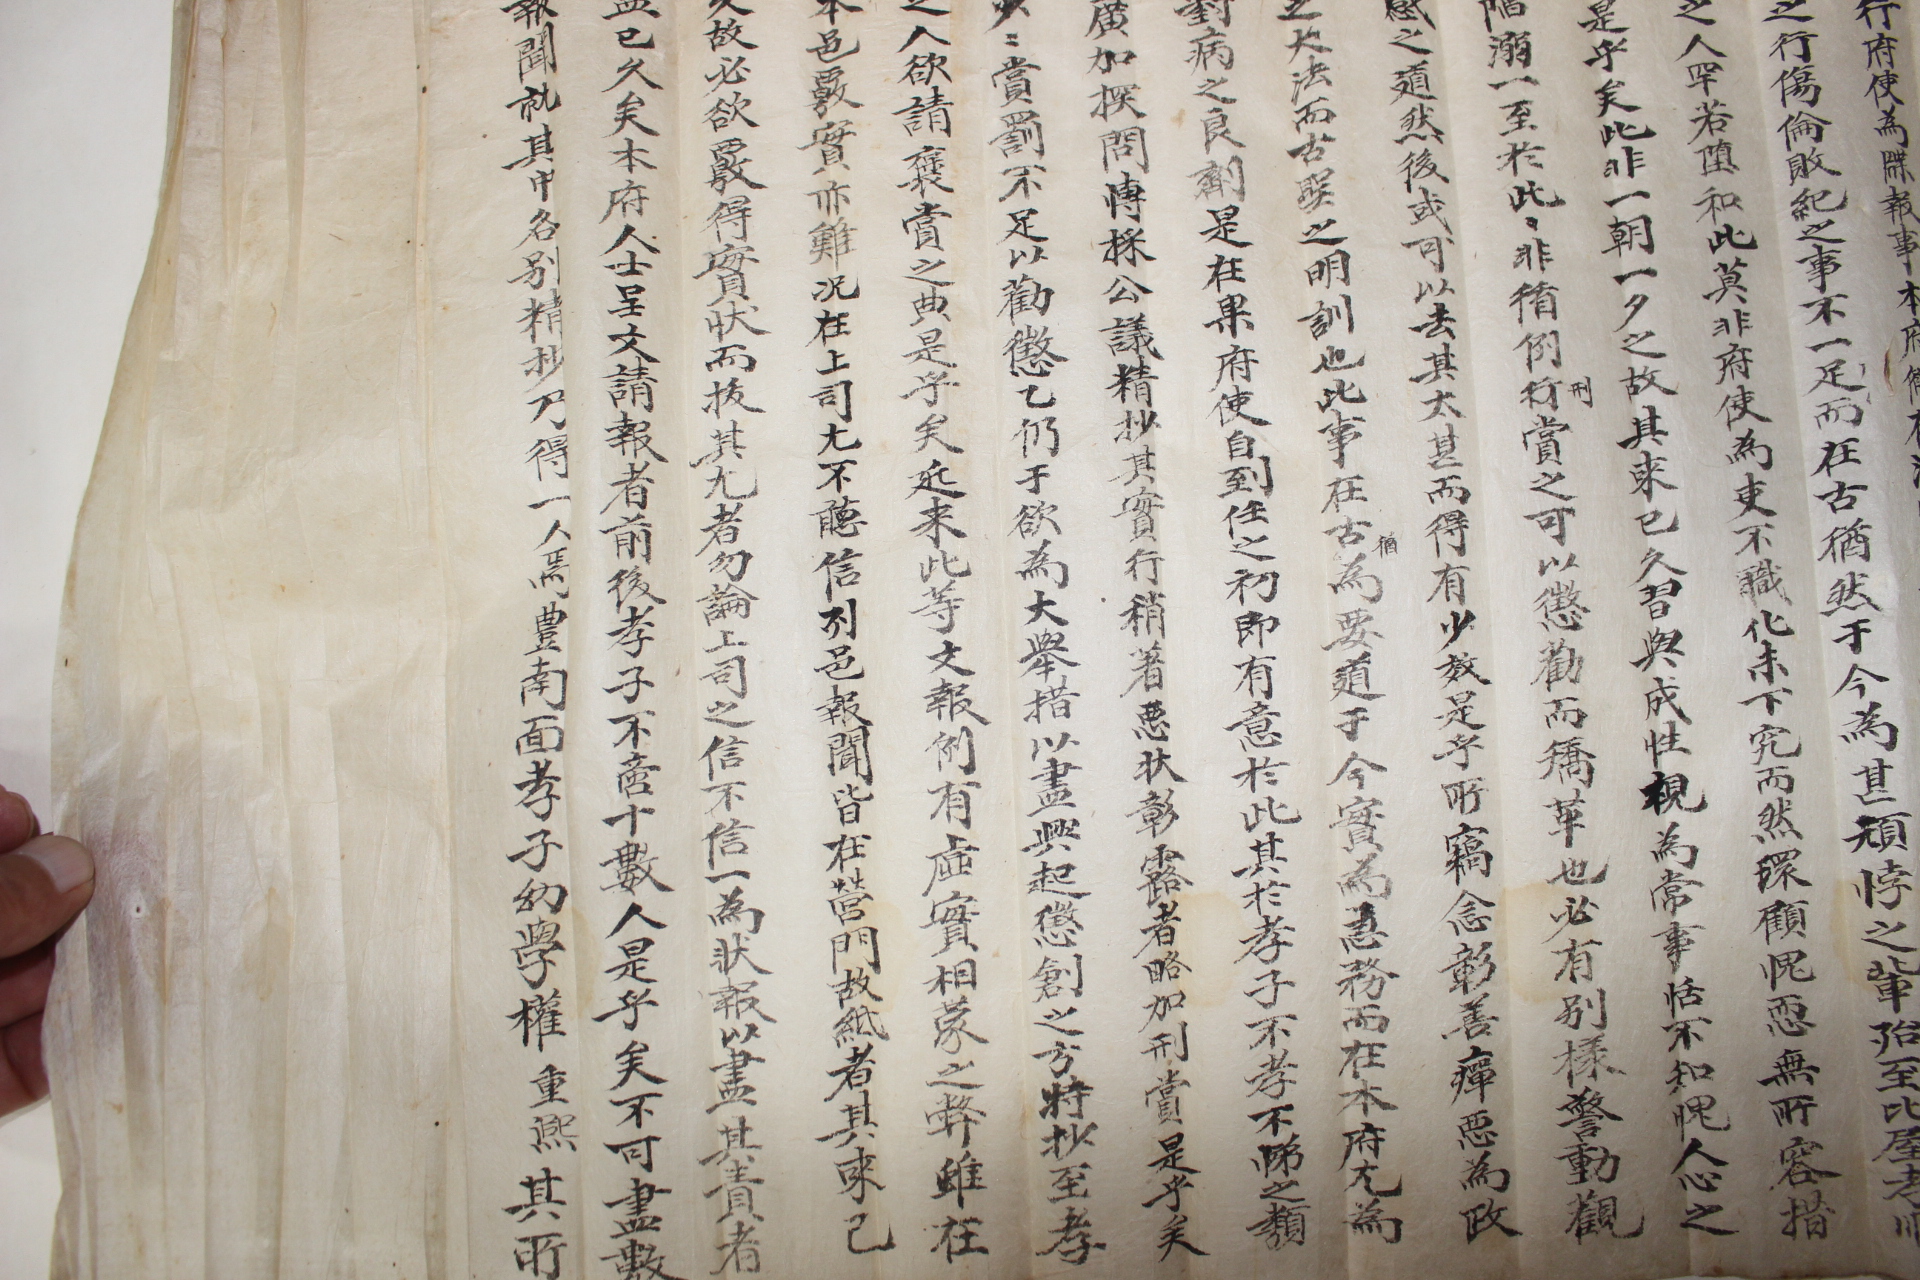 行府使為牒報事本府
之行傷倫敗紀之事不一足而在古猶然于今為甚頑悖之輩殆至比屋孝順
之人罕若墮和此莫非府使為吏不職化未下究而然環顧愧恧無所容措
是乎矣此非一朝一夕之故其來已久習與成性視為常事恬不知愧人心之
陷溺一至於此〻非循例行刑賞之可以懲勸而矯革也必有別樣警動觀
感之道然後或可以去其太甚而得有少效是乎所竊念彰善癉惡為政
之大法而古聖之明訓也此事在古猶為要道于今實為急務而在本府尤為
對病之良劑是在果府使自到任之初即有意於此其於孝子不孝不悌之類
廣加探問博採公議精抄其實行稍著惡狀彰露者略加刑賞是乎矣
少〻賞罰不足以勸懲乙仍于欲為大舉措以盡興起懲創之方特抄至孝
之人欲請褒賞之典是乎矣近來此等文報例有虛實相蒙之弊雖在
本邑覈實亦難況在上司尤不聽信列邑報聞皆在營門故紙者其來已
久故必欲覈得實狀而拔其尤者勿論上司之信不信一為狀報以盡其責者
盖已久矣本府人士呈文請報者前後孝子不啻十數人是乎矣不可盡數
報聞就其中各別精抄乃得一人焉豊南面孝子幼學權重熙其所